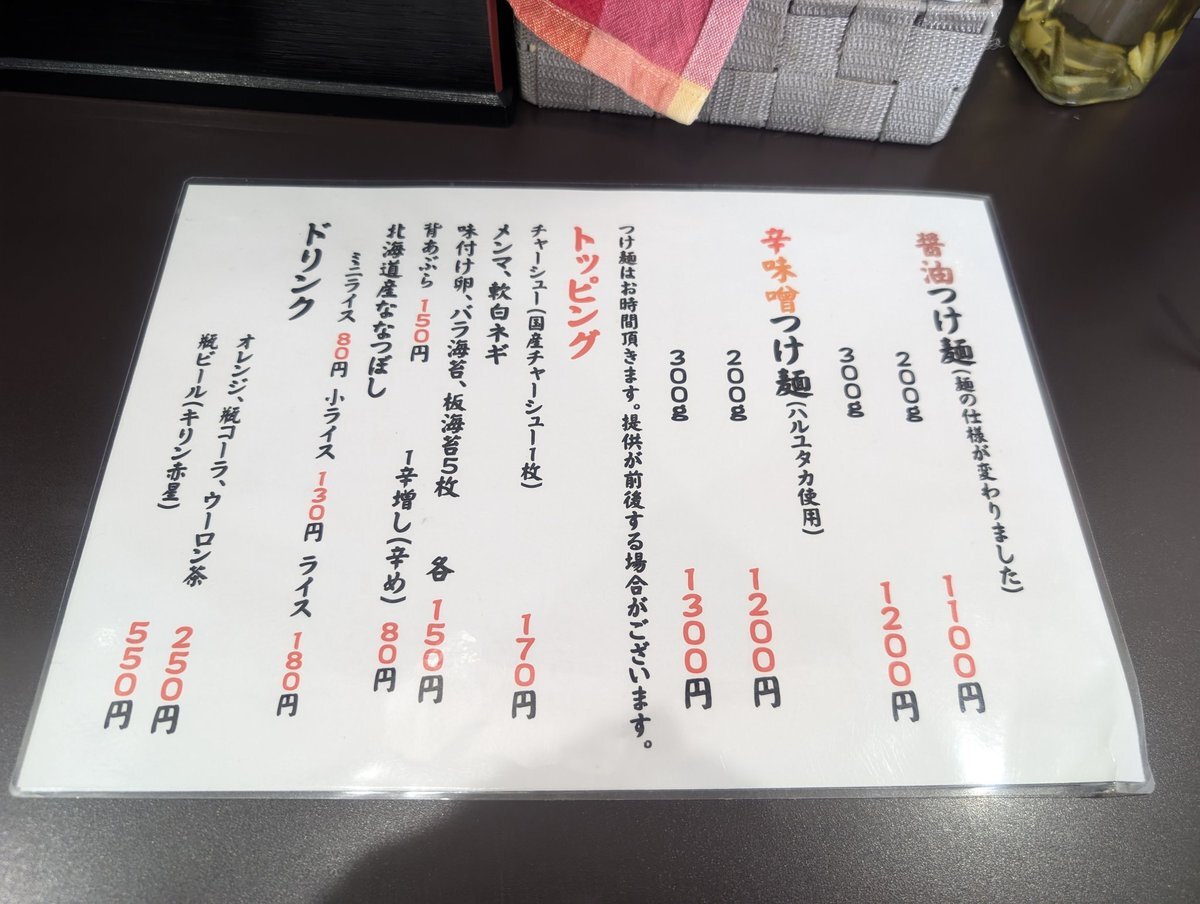 醤油つけ麺(麺の仕様が変わりました)
200g 1100円
300g 1200円
辛味噌つけ麺(ハルユタカ使用)
200g 1200円
300g 1300円
つけ麺はお時間頂きます。提供が前後する場合がございます。
トッピング
チャーシュー(国産チャーシュー1枚) 170円
メンマ、軟白ネギ
味付け卵、バラ海苔、板海苔5枚 各 150円
背あぶら 150円 1辛増し(辛め) 80円
北海道産ななつぼし
ミニライス 80円 小ライス 130円 ライス 180円
ドリンク
オレンジ、瓶コーラ、ウーロン茶 250円
瓶ビール(キリン赤星) 550円